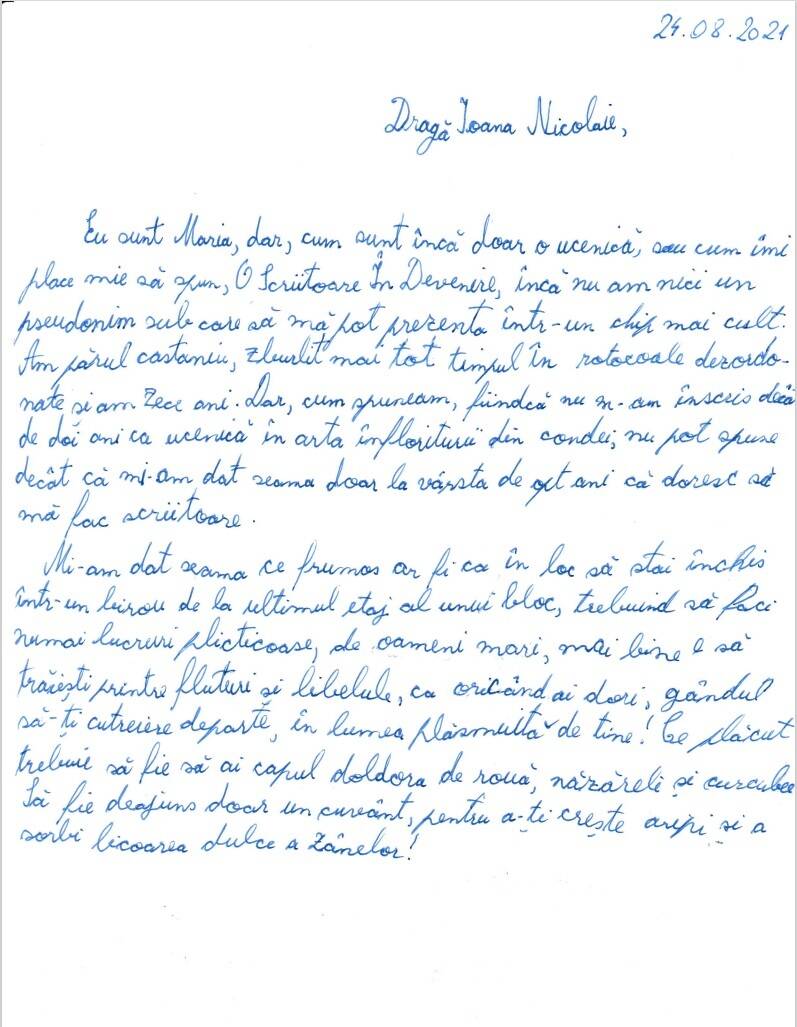 24.08.2021
Dragă Ioana Nicolaie,
Eu sunt Maria, dar, cum sunt încă doar o ucenică, sau cum îmi
place mie să spun, O Scriitoare În Devenire, încă nu am nici un
pseudonim sub care să mă pot prezenta într-un chip mai cult.
Am părul castaniu, zburlit mai tot timpul în rotocoale dezordo-
nate și am zece ani. Dar, cum spuneam, fiindcă nu m-am înscris decâ
de doi ani ca ucenică în arta înfloriturii din condei, nu pot spune
decât că mi-am dat seama doar la vârsta de opt ani că doresc să
mă fac scriitoare.
Mi-am dat seama ce frumos ar fi ca în loc să stai închis
într-un birou de la ultimul etaj al unui bloc, trebuind să faci
numai lucruri plicticoase, de oameni mari, mai bine e să
trăiești printre fluturi și libelule, ca oricând ai dori, gândul
să-ți cutreiere departe, în lumea plăsmuită de tine! Ce plăcut
trebuie să fie să ai capul doldora de rouă, năzăreli și curcubee
Să fie deajuns doar un cuvânt, pentru a-ți crește aripi și a
sorbi licoarea dulce a zânelor!